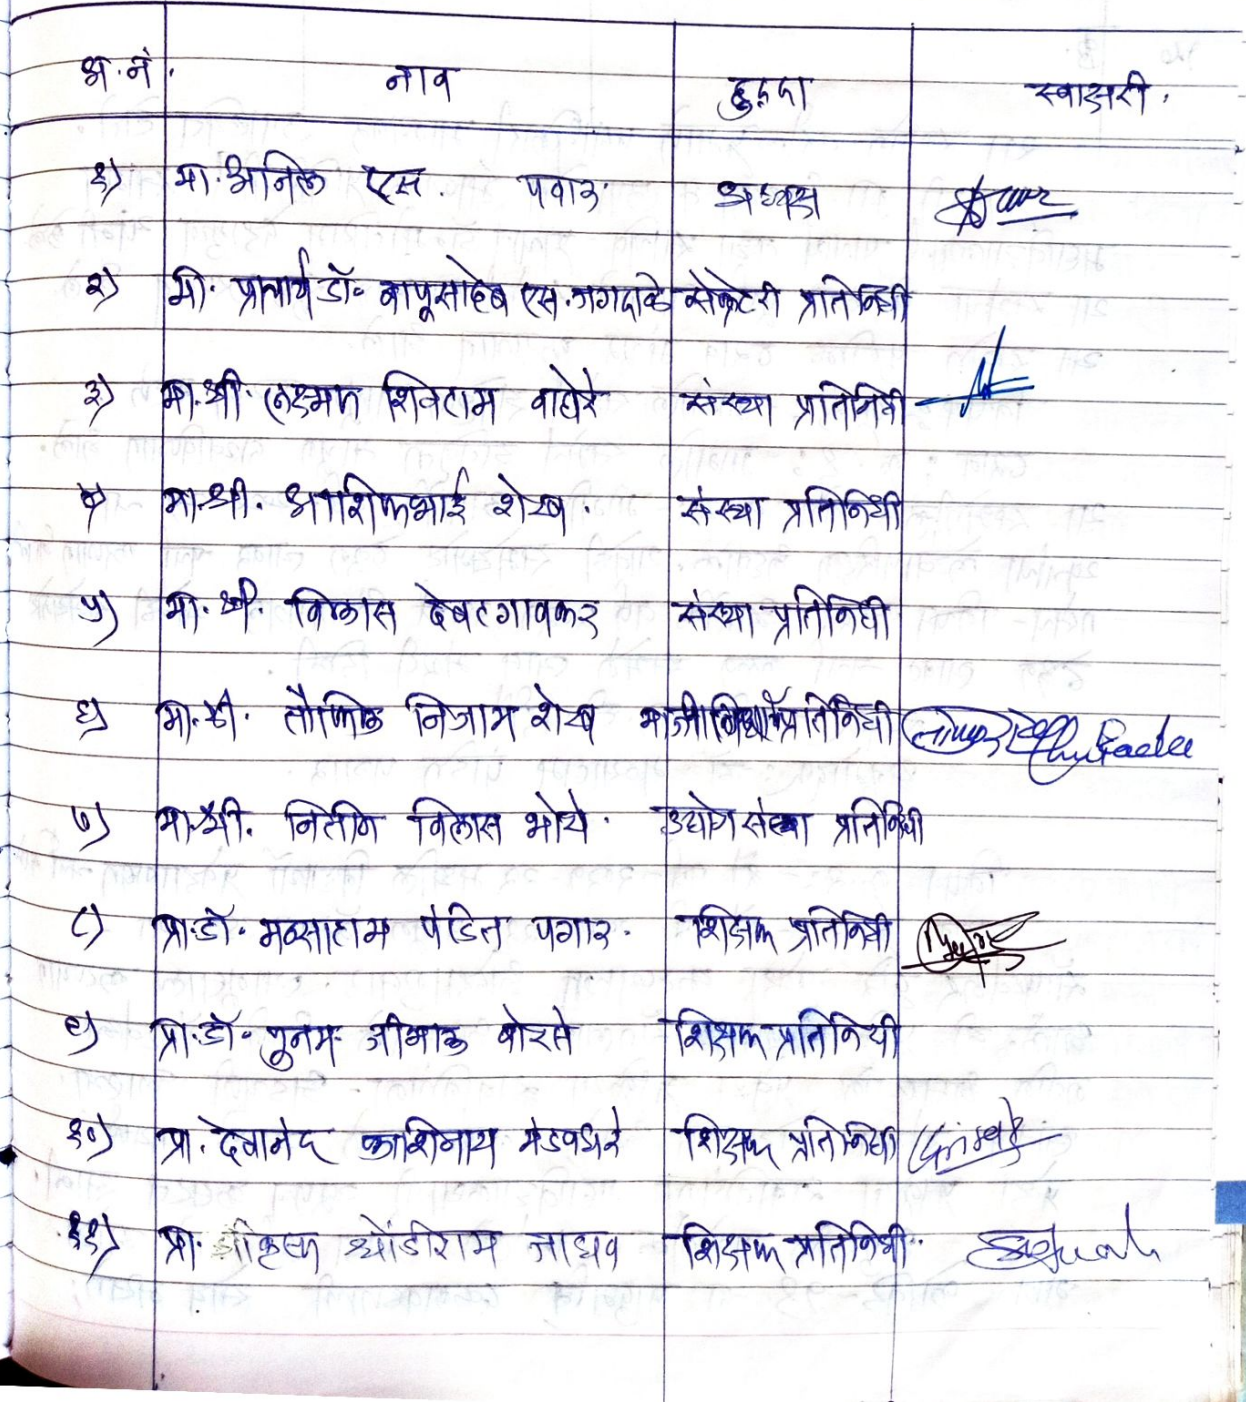 अ.नं. नाव हुद्दा स्वाक्षरी.
१) मा. अनिल एस. पवार. अध्यक्ष
२) मा. प्राचार्य डॉ. बापूसाहेब एस. जगदाळे सेक्रेटरी प्रतिनिधी
३) मा. श्री. लक्ष्मण शिवराम वाहोरे संस्था प्रतिनिधी
४) मा. श्री. आशिकभाई शेख. संस्था प्रतिनिधी
५) मा. श्री. विलास देवटगावकर संस्था प्रतिनिधी
६) मा. श्री. तौफिक निजाम शेख माजी प्रतिनिधी
७) मा. श्री. नितीन विलास भोये. उद्योग संस्था प्रतिनिधी
८) प्रा. डॉ. मन्साराम पंडित पगार. शिक्षक प्रतिनिधी
९) प्रा. डॉ. पुनम बोरसे शिक्षक प्रतिनिधी
१०) प्रा. देवानंद काशिनाथ मंडवधरे शिक्षक प्रतिनिधी
११) प्रा. श्रीकृष्ण धोंडीराम जाधव शिक्षक प्रतिनिधी.